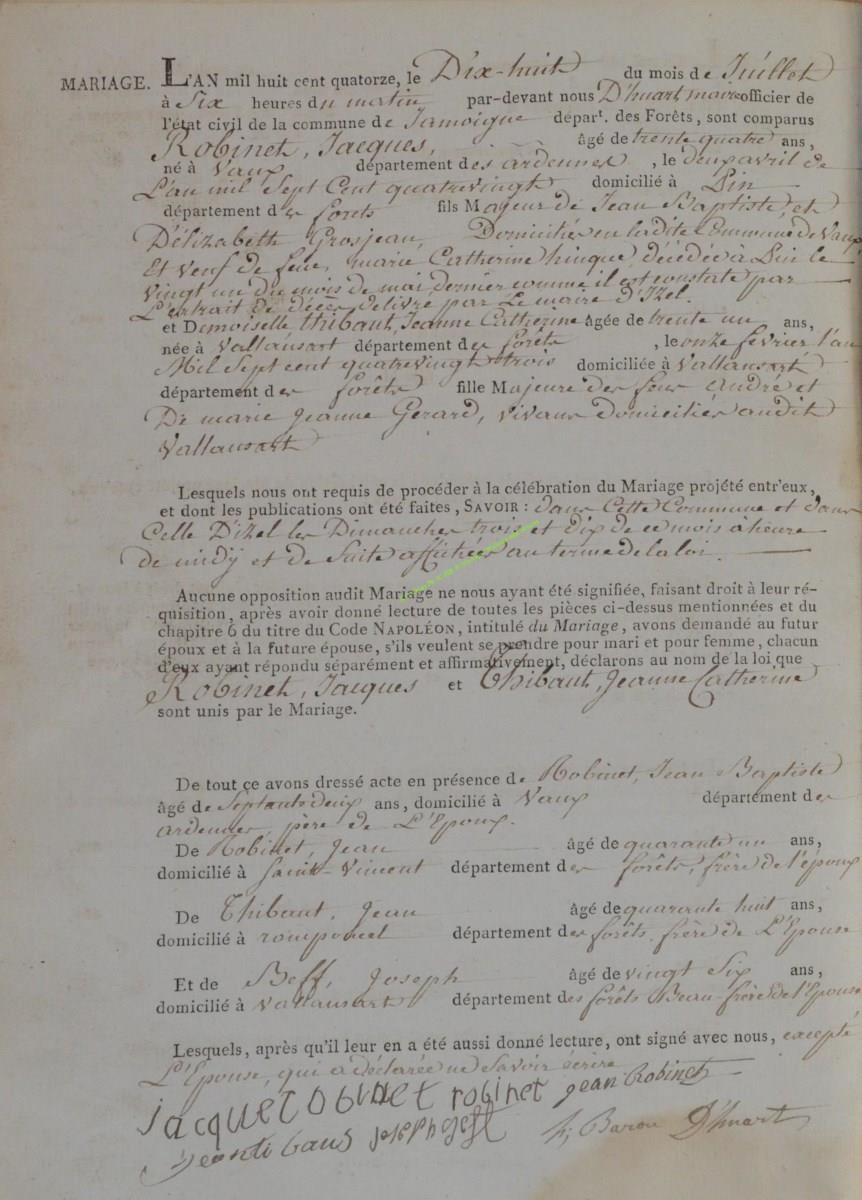 MARIAGE. L'AN mil huit cent quatorze, le Dix-huit du mois de Juillet
à Six heures du matin par-devant nous D'huart maire officier de
l'état civil de la commune de Jamoigne départ. des Forêts, sont comparus
Robinet, Jacques, âgé de trente quatre ans,
né à Vaux département des ardennes, le deux avril de
L'an mil Sept Cent quatrevingt domicilié à Pin
département des forêts fils Majeur de Jean Baptiste, et
D'élizabeth Grosjean, Domiciliés en ladite Commune de Vaux
Et veuf de feue, marie Catherine hinque, décédée à Pin le
vingt un du mois de mai dernier comme il est constaté par
L'extrait de décès délivré par Le maire d'Izel.
et Demoiselle thibaut, Jeanne Catherine âgée de trente un ans,
née à Vallansart département des forêts, le onze février l'an
Mil Sept cent quatrevingt trois domiciliée à Vallansart
département des forêts fille Majeure des feus André et
De marie Jeanne Gerard, vivans domiciliés audit
Vallansart
Lesquels nous ont requis de procéder à la célébration du Mariage projété entr'eux,
et dont les publications ont été faites, SAVOIR : dans Cette Commune et dans
Celle D'izel les Dimanches trois et dix de ce mois à heure
de midy et de Suite affichées au terme de la loi.
Aucune opposition audit Mariage ne nous ayant été signifiée, faisant droit à leur ré-
quisition, après avoir donné lecture de toutes les pièces ci-dessus mentionnées et du
chapitre 6 du titre du Code NAPOLÉON, intitulé du Mariage, avons demandé au futur
époux et à la future épouse, s'ils veulent se prendre pour mari et pour femme, chacun
d'eux ayant répondu séparément et affirmativement, déclarons au nom de la loi que
Robinet, Jacques et Thibaut, Jeanne Catherine
sont unis par le Mariage.
De tout ce avons dressé acte en présence de Robinet, Jean Baptiste
âgé de Septante deux ans, domicilié à Vaux département des
ardennes, père de L'Epoux.
De Robinet, Jean âgé de quarante un ans,
domicilié à Saint-Vincent département des forêts, frère de l'époux
De Thibaut, Jean âgé de quarante huit ans,
domicilié à romponcel département des forêts, frère de L'Epouse
Et de Beff, Joseph âgé de vingt Six ans,
domicilié à Vallansart département des forêts Beau-frère de l'Epouse
Lesquels, après qu'il leur en a été aussi donné lecture, ont signé avec nous, excepté
L'Epouse, qui a déclarée ne Savoir écrire
jacque robinet robinet jean Robinet
jean tibaus joseph beff Baron D'huart